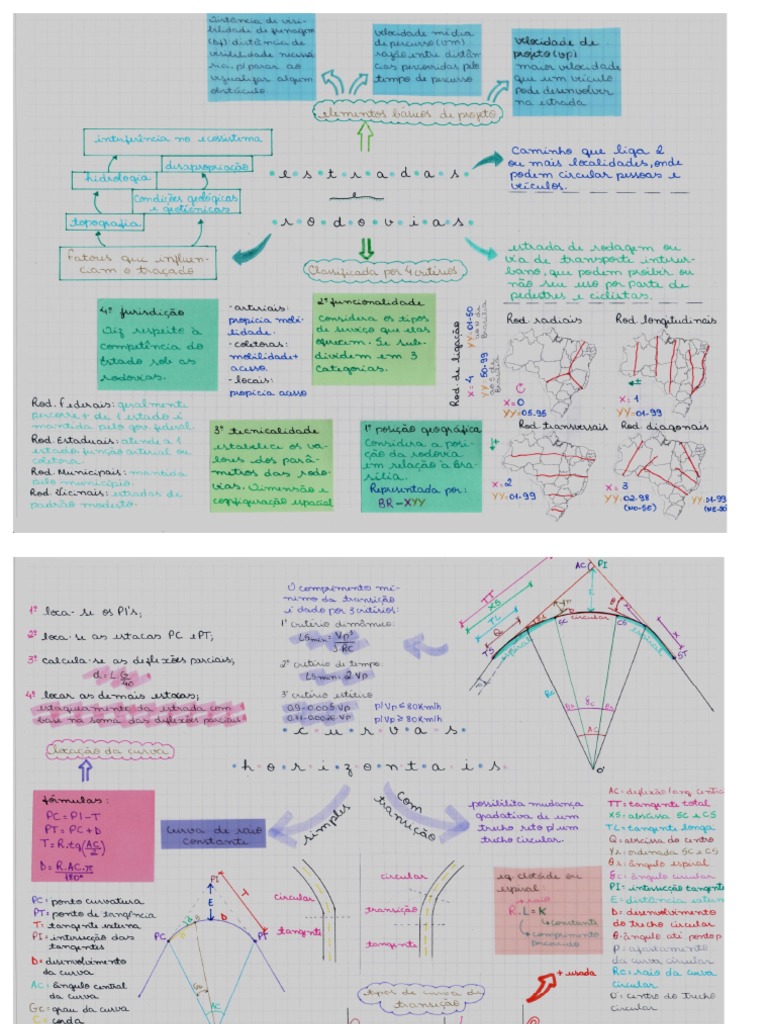 Distância de visi-
bilidade de frenagem
(Df) distância de
visibilidade necessá-
ria p/ parar ao
visualizar algum
obstáculo
velocidade média
de percurso (Vm)
razão entre distân-
cias percorridas pelo
tempo de percurso
velocidade de
projeto (Vp)
maior velocidade
que um veículo
pode desenvolver
na estrada
elementos básicos de projeto
interferência no ecossistema
desapropriação
hidrologia
Condições geológicas
e geotécnicas
topografia
Fatores que influen-
ciam o traçado
estradas
rodovias
Caminho que liga 2
ou mais localidades, onde
podem circular pessoas e
veículos.
estrada de rodagem ou
via de transporte interur-
bano, que podem proibir ou
não seu uso por parte de
pedestres e ciclistas.
Classificada por 4 critérios
4º jurisdição
Diz respeito à
competência do
Estado sob as
rodovias.
- arteriais:
propicia mobi-
lidade.
- coletoras:
mobilidade +
acesso.
- locais:
propicia acesso
2º funcionalidade
Considera os tipos
de serviço que elas
oferecem. Se sub-
dividem em 3
categorias.
Rod. de ligação
X = 4
YY: 01-50
YY: 50-99
Rod. radiais
X=0
YY: 05-95
Rod. longitudinais
X=1
YY=01-99
Rod. Federais: geralmente
percorre + de 1 estado é
mantida pelo gov. federal.
Rod. Estaduais: atende a 1
estado função arterial ou
coletora.
Rod. Municipais: mantida
pelo município.
Rod. Vicinais: estradas de
padrão modesto.
3º tecnicalidade
estabelece os va-
lores dos parâ-
metros das rodo-
vias. Dimensão e
configuração espacial
1º posição geográfica
Considera a posi-
ção da rodovia
em relação à Bra-
sília.
Representada por:
BR-XYY
Rod transversais
X=2
YY=01-99
Rod. diagonais
X=3
YY=
02-98
(NO-SE)
01-99
(NE-SO)
1º loca-se os PI's;
2º loca-se as estacas PC e PT;
3º calcula-se as deflexões parciais;
d=L G/40
4º locar as demais estacas;
estaqueamento da estrada com
base na soma das deflexões parciais
locação da curva
O comprimento mí-
nimo da transição
é dado por 3 critérios:
1º critério dinâmico:
LSmin= Vp³/J.RC
2º critério de tempo:
LSmin= 2 Vp
3º critério estético
0.9-0.005 Vp p/Vp ≤ 80Km/h
p/Vp ≥ 80Km/h
curvas
horizontais
AC PI
TT
XS
TL
Q
circular
espiral
espiral
SC
CS
TS
ST
Rc
AC
O'
fórmulas:
PC = PI - T
PT = PC + D
T = R.tg(AC/2)
D = R.AC.π/180°
Curva de raio
constante
simples
com
transição
possibilita mudança
gradativa de um
trecho reto p/ um
trecho circular.
AC = deflexão/ang central
TT = tangente total
XS = abscissa SC e CS
TL = tangente longa
Q = abscissa do centro
YS = ordenada SC e CS
θs = ângulo espiral
θc = ângulo circular
PI = intersecção tangente
E = distância extern
D = desenvolvimento
do trecho circular
θ = ângulo até ponto p
P = afastamento
da curva circular
RC = raio da curva
circular
O' = centro do trecho
circular
PC = ponto curvatura
PT = ponto de tangência
T = tangente externa
PI = intersecção das
tangentes
D = desenvolvimento
da curva
AC = ângulo central
da curva
GC = grau da curva
C = corda
PI
E
T
D
PC
PT
AC
circular
tangente
circular
transição
tangente
eq. clotóide ou
espiral
raio
R.L=K
constante
comprimento
percorrido
+ usada
tipos de curva de
transição